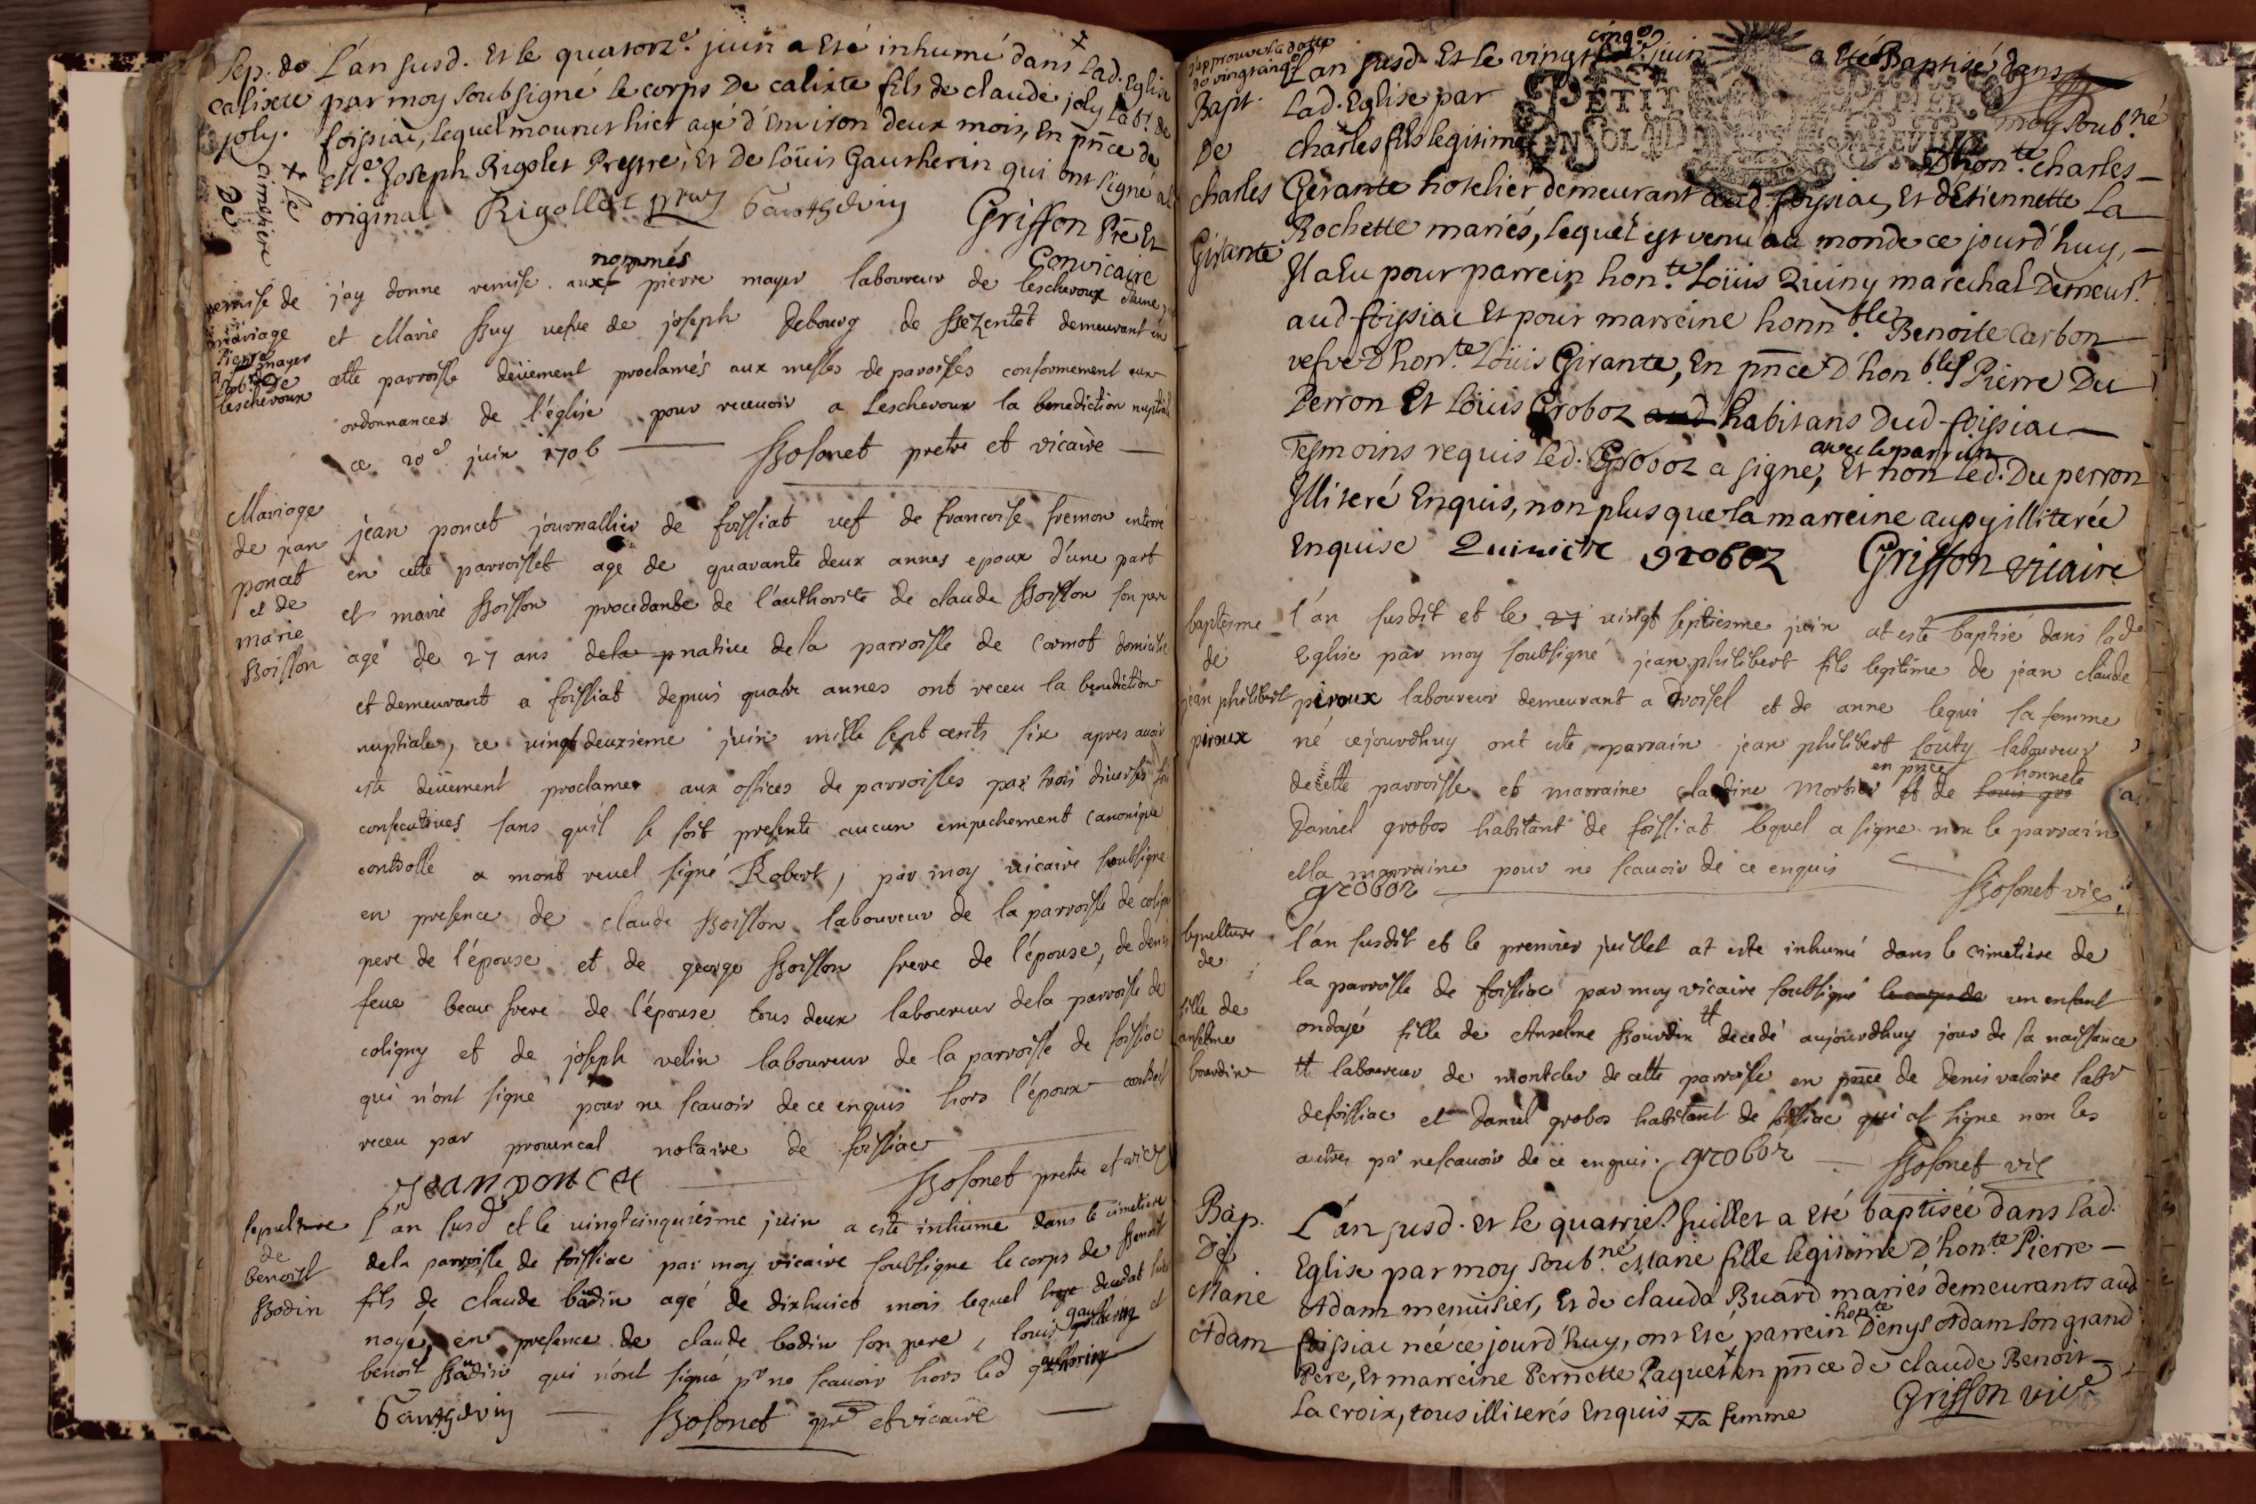 Sep. de
calixte
joly.
L'an susd. Et le quatorze. juin a Eté inhumé dans Lad. Eglise
par moy soubsigné le corps De calixte fils de claude joly lab.r de
foissiac, lequel mourut hier agé d'Environ deux mois, En pñce de
Mre. Joseph Rigolet Prestre, Et De Loüis Gautherin qui ont signé a l
original Rigollet prtre Gautherin Griffon Pre Et
Convicaire
+ le
cimetiere
De
remise de
mariage
Pierre mayer
lab.r de
lescheroux
nommés
j'ay donne remise aux pierre mayer laboureur de lescheroux d'une
et Marie Huy vefve de joseph Debourg de demeurant en
cette parroisse deüement proclamés aux messes de paroisses conformement aux
ordonnances de l'église pour recevoir a Lescheroux la benediction nuptial
ce 20e juin 1706 Bosonet pretre et vicaire
Mariage
de jean
poncet
et de
marie
Boisson
jean poncet journallier de foissiat vef de francoise fremon enterré
en cette parroisset age de quarante deux annes epoux d'une part
et marie Boisson procedante de l'authorite de claude Boisson son pere
agé de 27 ans de la p native de la parroisse de Cormot domicilie
et demeurant a foissiat depuis quatre annes ont receu la benediction
nuptiale, ce vingtdeuxieme juin mille sept cents six apres avoir
esté deüement proclamer aux offices de parroisses par trois diverses fois
consecutives sans qu'il se soit presenté aucun empechement canonique
controllé a mont revel signé Robert, par moy vicaire soubsigné
en presence de claude Boisson laboureur de la parroisse de coligni
pere de l'épouse et de george Boisson frere de l'épouse, de denis
feue beau frere de l'épouse tous deux laboureur de la parroisse de
coligny et de joseph velin laboureur de la parroisse de foissiac
qui n'ont signé pour ne scavoir de ce enquis hors l'époux contract
receu par provencal notaire de foissiac
Jean poncet Bosonet pretre et vice
sepulture
de
benoist
Bodin
l'an susd et le vingtcinquiesme juin a esté inhume dans le cimetiere
de la parroisse de foissiac par moy vicaire soubsigne le corps de Benoit
fils de claude bodin agé de dixhuict mois lequel decedat
noyé, en presence de claude bodin son pere, louis gautherin et
benoit Bodin qui n'ont signé pr ne scavoir hors led gautherin
Gautherin Bosonet pre et vicaire
J'approuve la datte
de vingtcinqe
Bapt.
De
charles
Girante
cinqe
L'an susd. Et le vingt juin a Eté Baptisé dans
Lad. Eglise par moy soub.né
charles fils legitime D'hon.te charles
PETIT PAPIER
Gerante hotelier demeurant aud. foissiac, Et d'Etiennette La
Rochette mariés, lequel est venu au monde ce jourd'huy,
Il a Eu pour parrein hon.te Loüis Quiny marechal Demeur.t
aud foissiac Et pour marreine honn.ble Benoite Carbon
vefve D'hon.te Loüis Girante, En pñce D'hon.bles Pierre Du
Perron Et Loüis Groboz aud habitans Dud foissiac
avec le parrein
Tesmoins requis led. Groboz a signé, Et non led. Du perron
Illiteré Enquis, non plus que la marreine aussy illiterée
Enquise groboz Griffon vicaire
baptesme
de
jean philibert
piroux
l'an susdit et le 27 vingt septiesme juin at esté baptisé dans lade
Eglise par moy soubsigné jean philibert fils legitime de jean claude
piroux laboureur demeurant a Troisel et de anne lequi sa femme
né cejourdhuy ont esté parrain jean philibert laboureur
en pñce honneste
de cette parroisse et marraine claudine Mortier et de louis gro
Daniel grobos habitant de foissiat lequel a signé non le parrain
et la marraine pour ne scavoir de ce enquis
groboz Bosonet vic
sepulture
de
fille de
anselme
bourdin
l'an susdit et le premier juillet at esté inhumé dans le cimetiere de
la parroisse de foissiac par moy vicaire soubsigné le corps de un enfant
ondoyé fille de Anselme Bourdin # decedé aujourdhuy jour de sa naissance
# laboureur de montcler de cette parroisse en pñce de denis valoire labr
de foissiac et Daniel grobos habitant de foissiac qui at signe non les
autres pr ne scavoir de ce enquis. groboz Bosonet vic
Bap.
De
Marie
Adam
L'an susd. Et le quatrie. Juillet a Eté baptisée dans Lad.
Eglise par moy soub.né Marie fille legitime D'hon.te Pierre
Adam menuisier, Et de clauda Buard mariés demeurants aud
hon.te
foissiac née ce jourd'huy, ont Eté parrein Denys Adam son grand
Pere, Et marreine Pernette Paquet + en pñce de claude Benoit
La croix, tous illiterés Enquis + sa femme Griffon vice